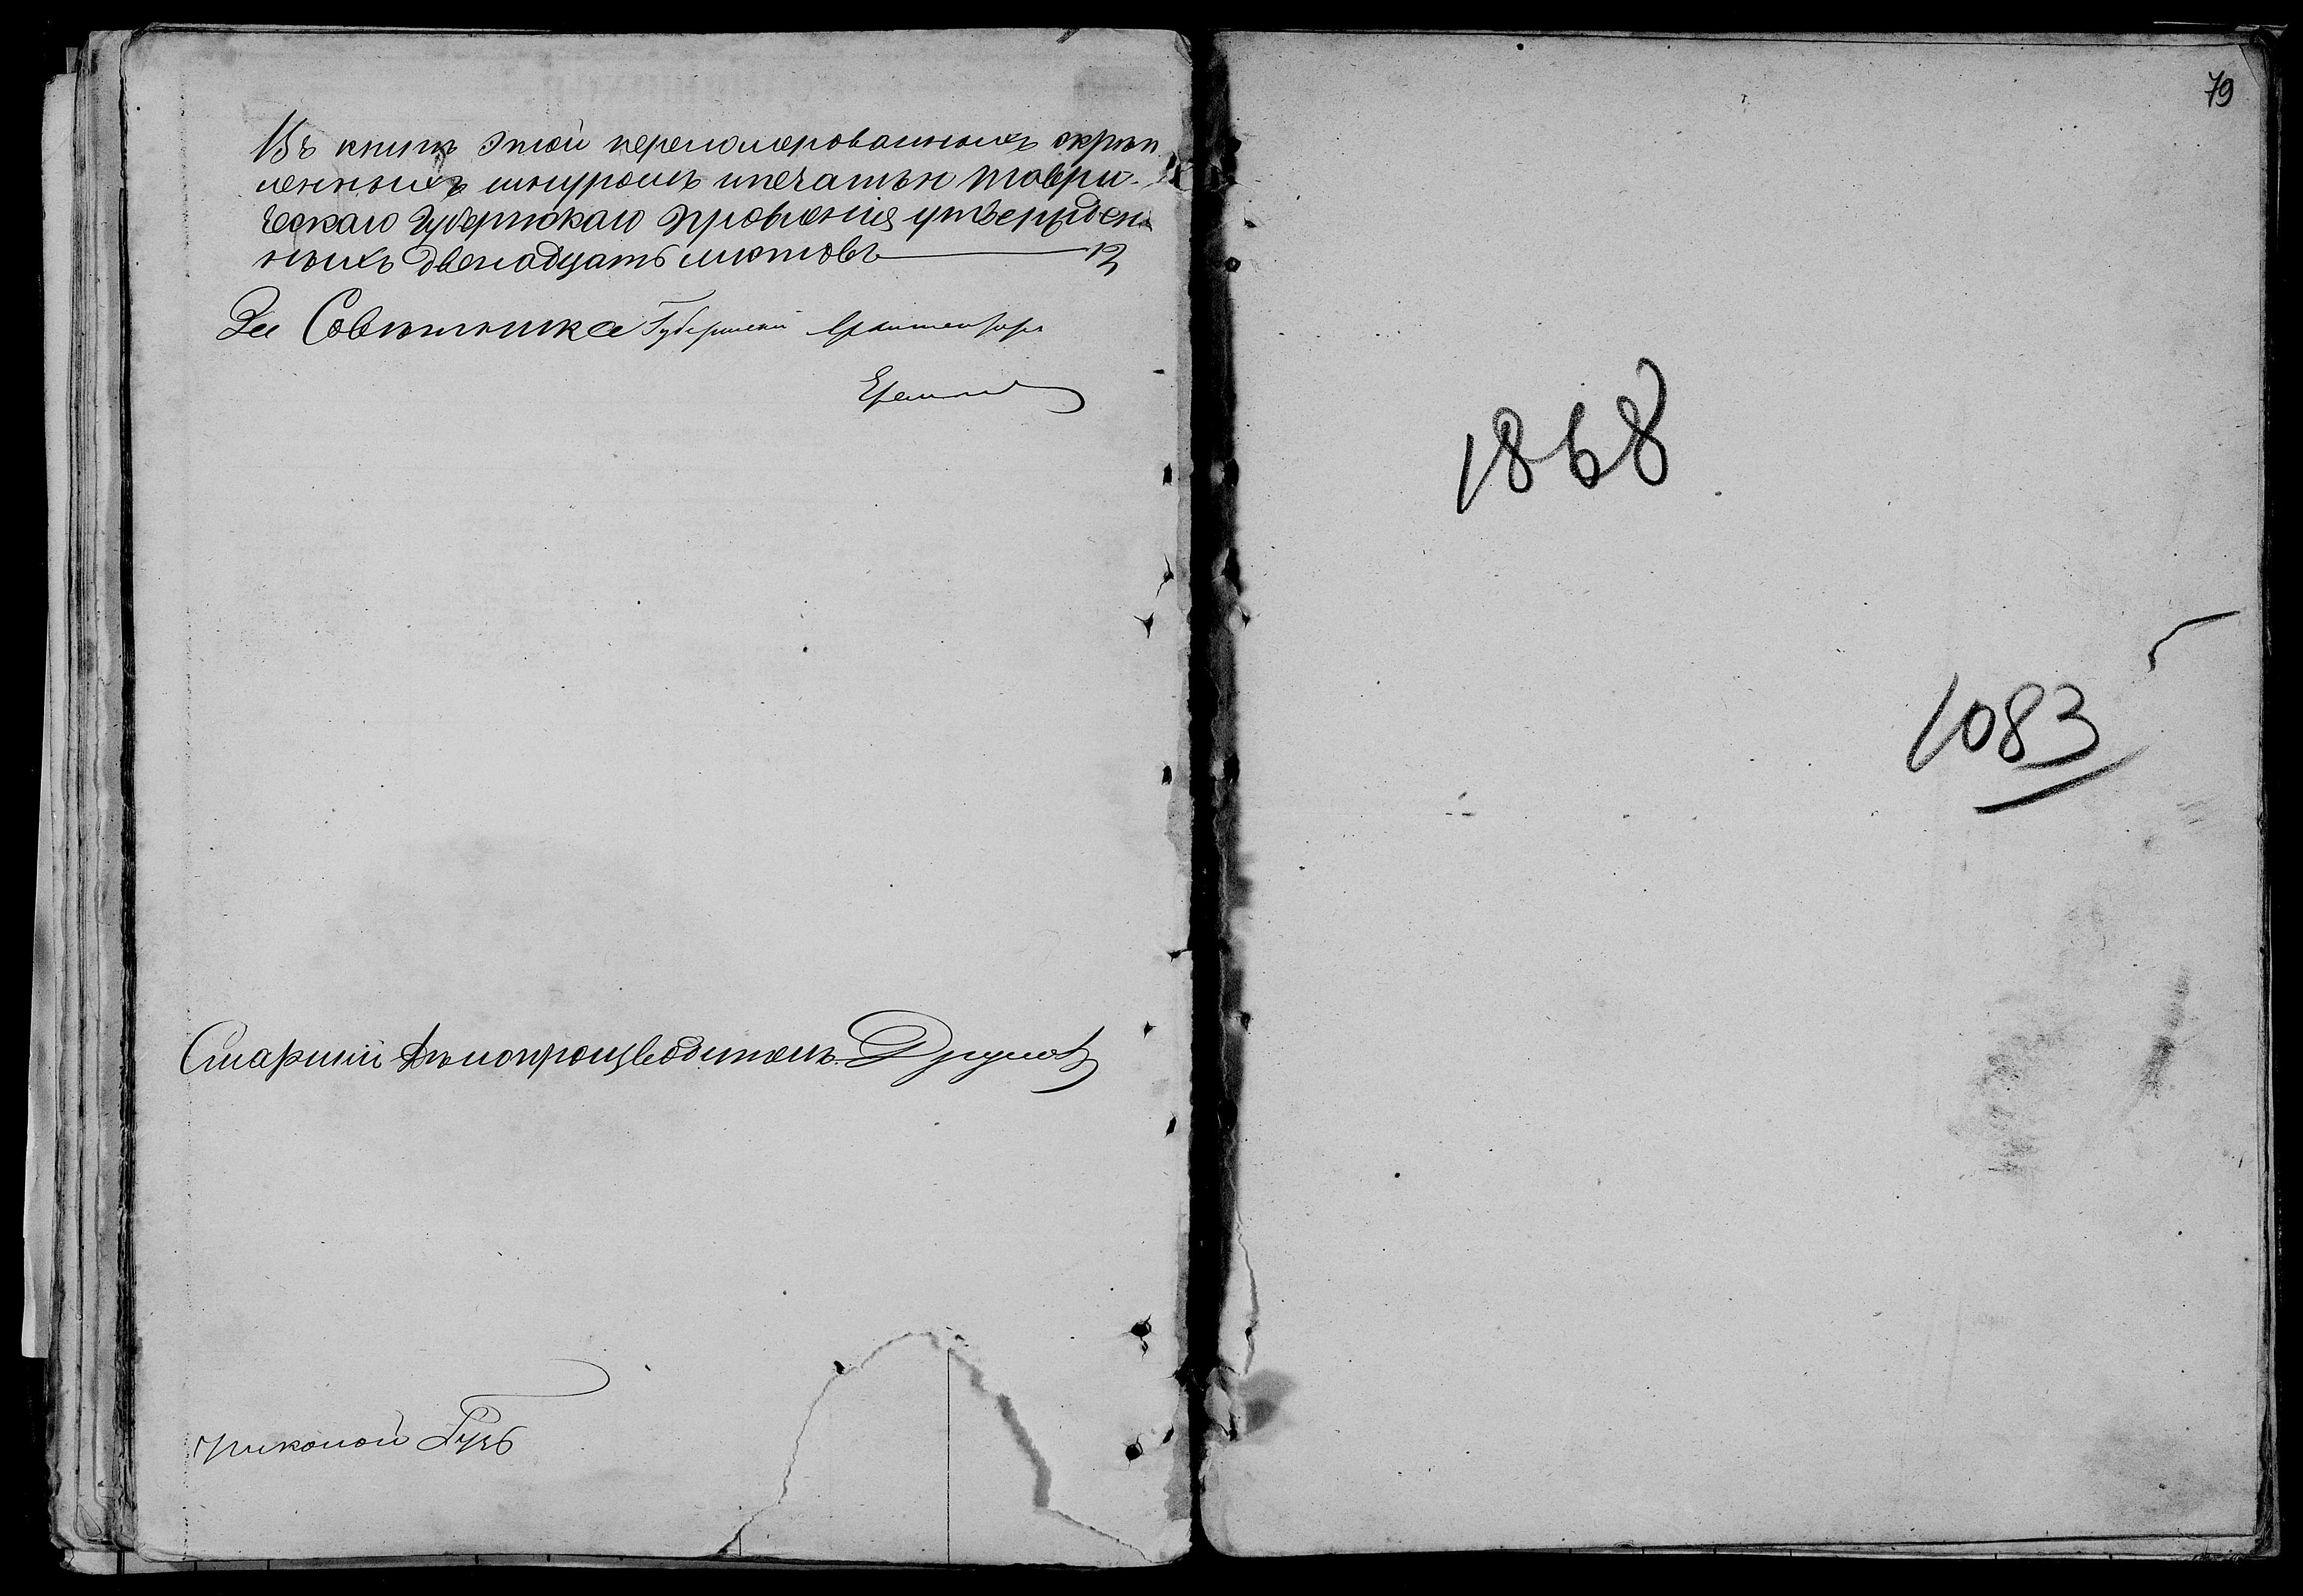 Въ книгѣ этой переномерованныхъ скрѣп
ленныхъ шнуромъ и печатью Таври-
ческаго Губернскаго Правленія утвержден
ныхъ двенадцать листовъ 12
За Совѣтника Губернскій Архитекторъ
Старшій Дѣлопроизводитель
79
1868
1083